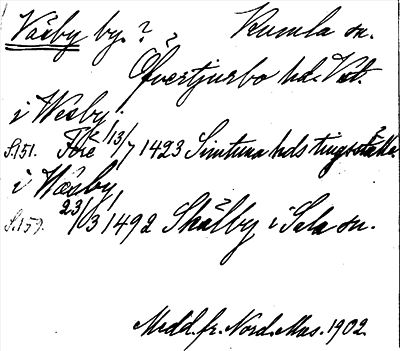 Väsby by.? Kumla sn.
Övertjurbo hd. Vstm.
i Wesby
S.151. Före 13/7 1423 Simtuna hds tingsställe.
i Wäsby
S.159. 23/3 1492 Skälby i Sala sn.
Medd. fr. Nord. Mus. 1902.